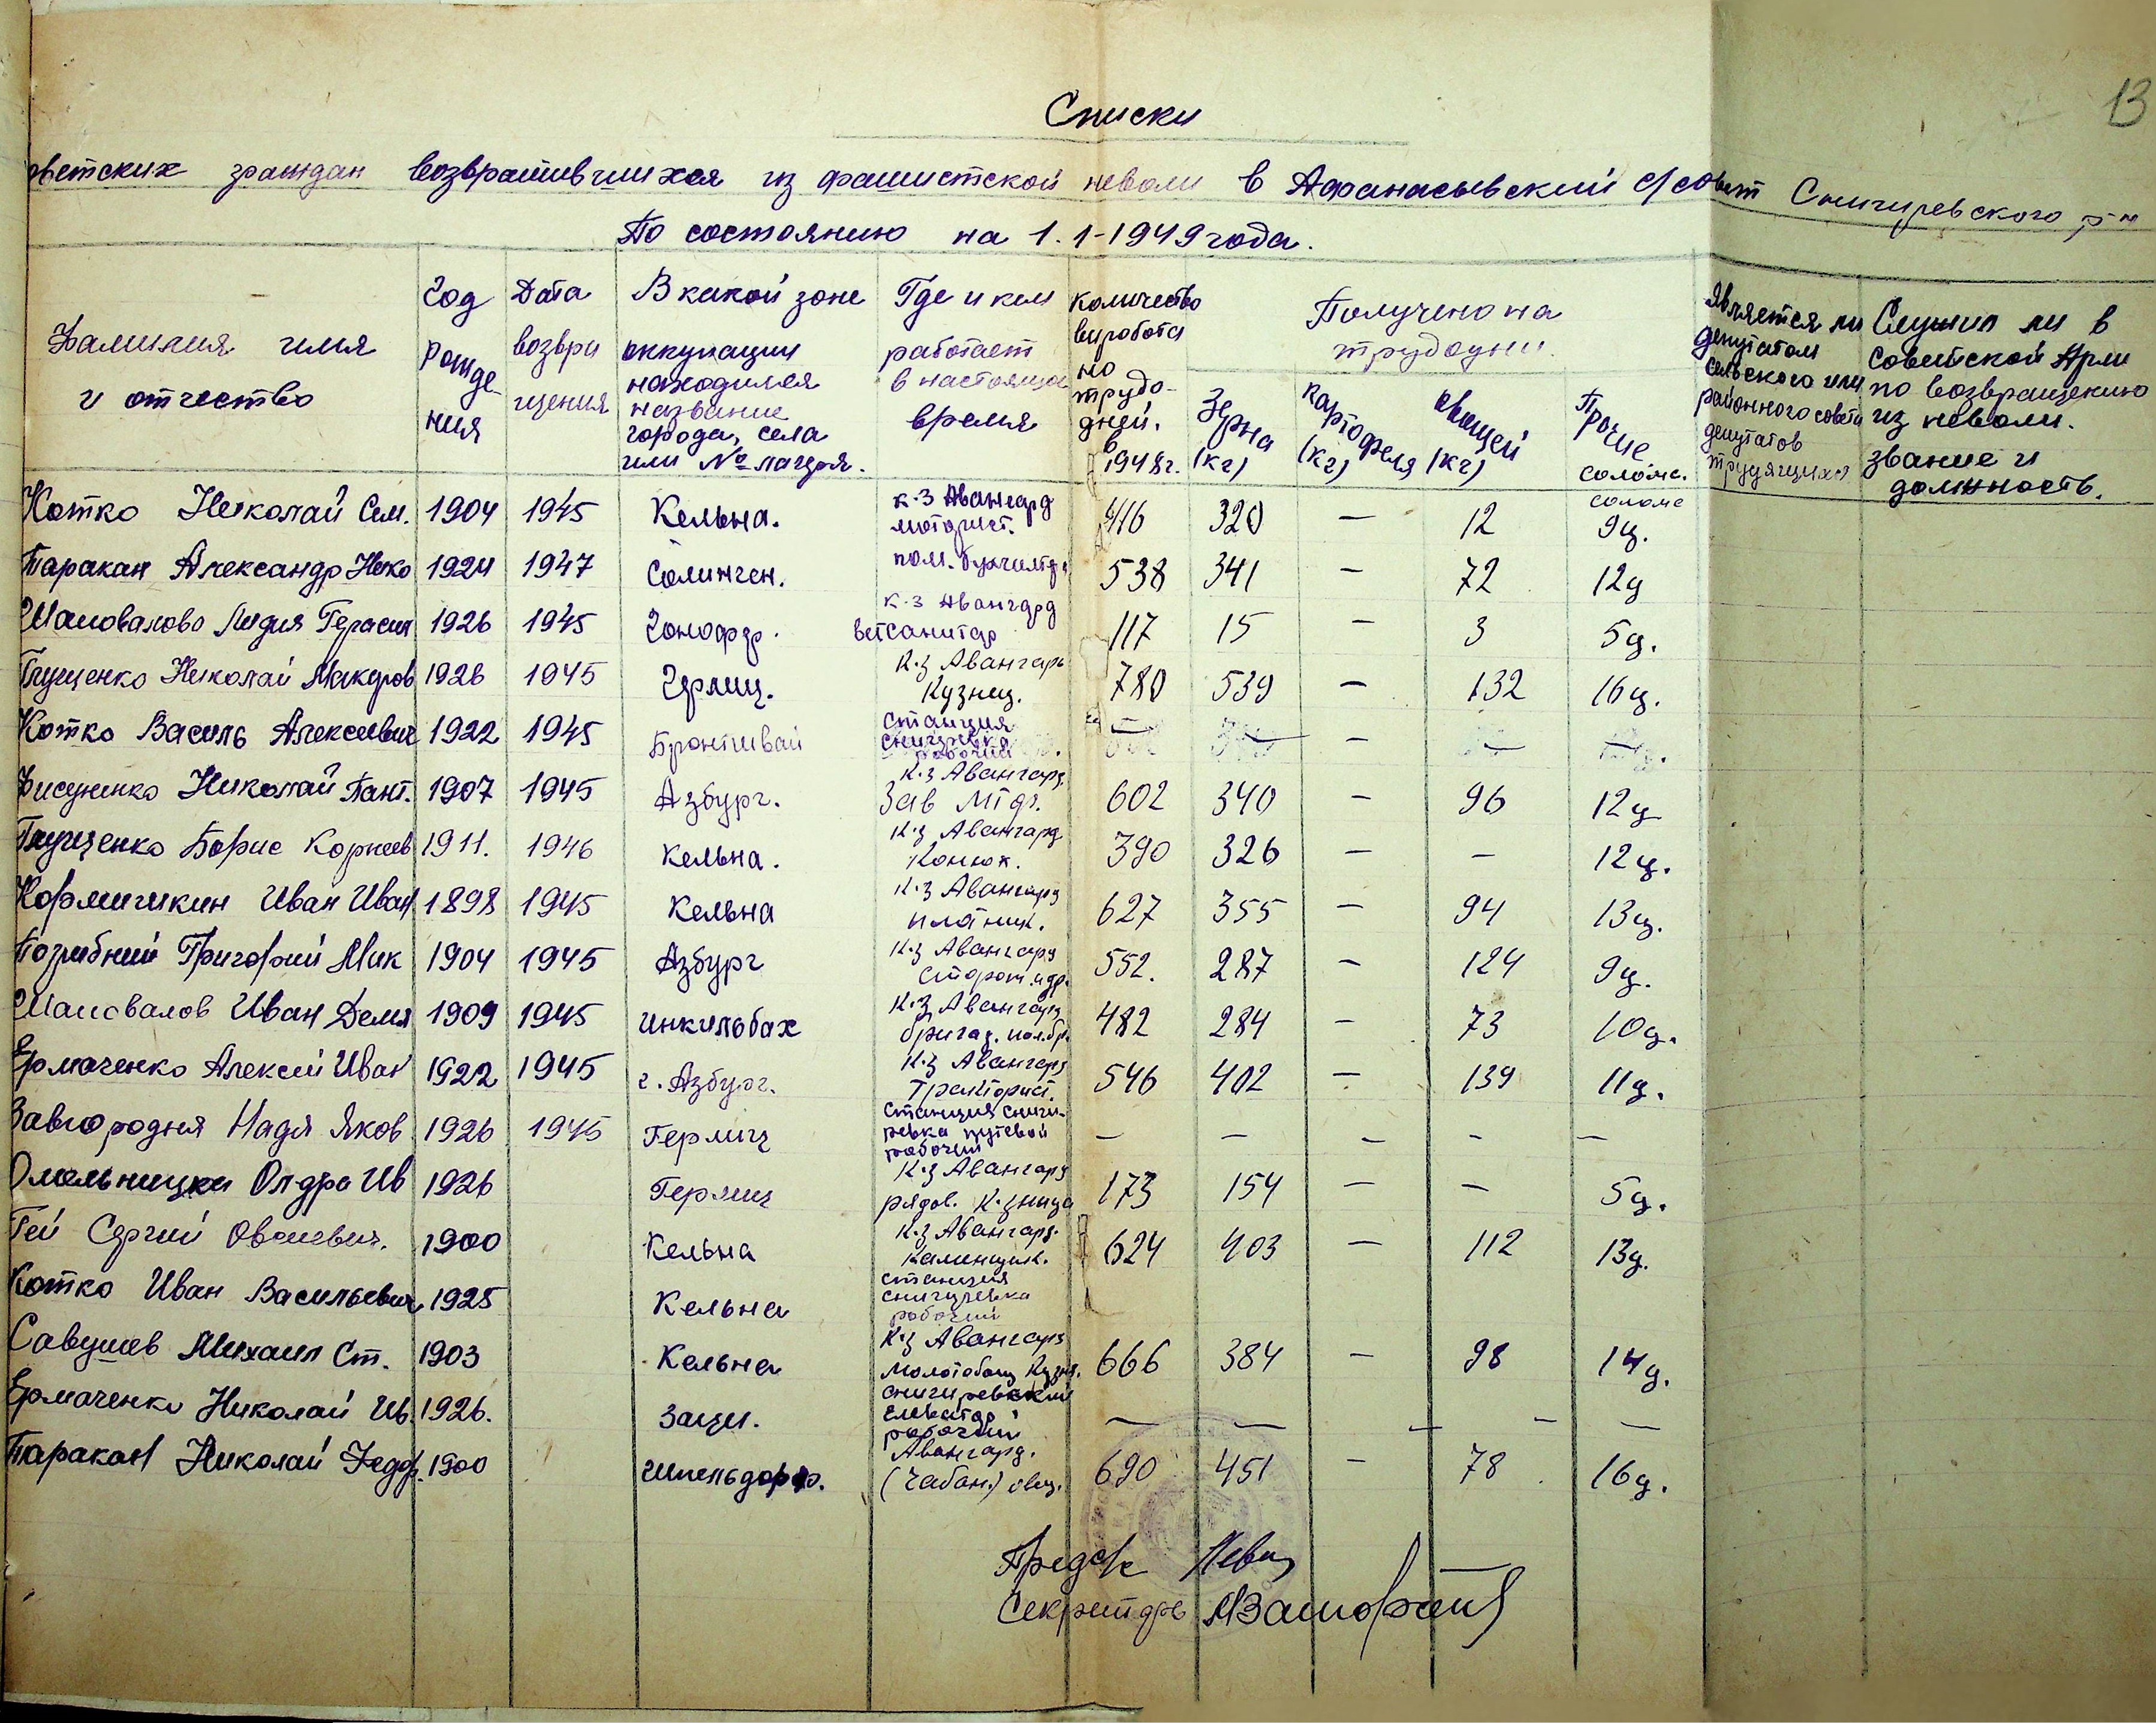 13
Списки
оветских граждан возвратившихся из фашистской неволи в Афанасьевский с/совет Снигиревского р-н
По состоянию на 1.1-1949 года.
Фамилия имя и отчество
Год рождения
Дата возвращения
В какой зоне оккупации находился название города, села или № лагеря.
Где и кем работает в настоящее время
Количество виработано трудодней. в 1948г.
Получено на трудодни.
Зерна (кг)
Картофеля (кг)
Овощей (кг)
Прочие солома.
Является ли депутатом сельского или районного совета депутатов трудящихся
Служил ли в советской Арми по возвращению из неволи. звание и должность.
Котко Николай Сем. 1904 1945 Кельна. к-з Авангард моторист. 416 320 — 12 солома 9ц.
Таракан Александр Нико 1924 1947 Солинген. пом. бухгалтра 538 341 — 72 12ц
Шаповалова Лидия Герасим 1926 1945 к-з Авангард ветсанитар 117 15 — 3 5ц.
Глущенко Николай Макаров 1926 1945 Герлиц. К-з Авангард Кузнец. 780 539 — 132 16ц.
Котко Василь Алексеевич 1922 1945 станция снигиревка рабочий — — — — —
Фисуненко Николай Пант. 1907 1945 Азбург. К-з Авангард Зав МТФ. 602 340 — 96 12ц
Глущенко Борис Корнеев 1911. 1946 Кельна. К-з Авангард Конюх. 390 326 — — 12ц.
Кормишкин Иван Иван 1898 1945 Кельна К-з Авангард платник. 627 355 — 94 13ц.
Погрибний Григорий Мик 1904 1945 Азбург К-з Авангард 552. 287 — 124 9ц.
Шаповалов Иван Демя 1909 1945 Инкильбах К-з Авангард бригад. 482 284 — 73 10ц.
Ермаченко Алексей Иван 1922 1945 г. Азбург. К-з Авангард Тракторист. 546 402 — 139 11ц.
Завгородня Надя Яков 1926 1945 Герлиц станция снигиревка путевой рабочий — — — — —
Олдра Ив 1926 Герлиц К-з Авангард рядов. К-зница 173 154 — — 5ц.
Гей Сергий 1900 Кельна К-з Авангард. Каменщик. 624 403 — 112 13ц.
Котко Иван Васильевич 1925 Кельна станция снигиревка рабочий
Савушев Михаил Ст. 1903 Кельна К-з Авангард молотобоец Кузня. 666 384 — 98 14ц.
Ермаченко Николай Ив. 1926. Заци. снигиревский елеватор рабочий — — — — —
Таракан Николай Федор. 1900 Шпельдорф. Авангард. (Чабан.) овец. 690 451 — 78 16ц.
Предс/с
Секретарь